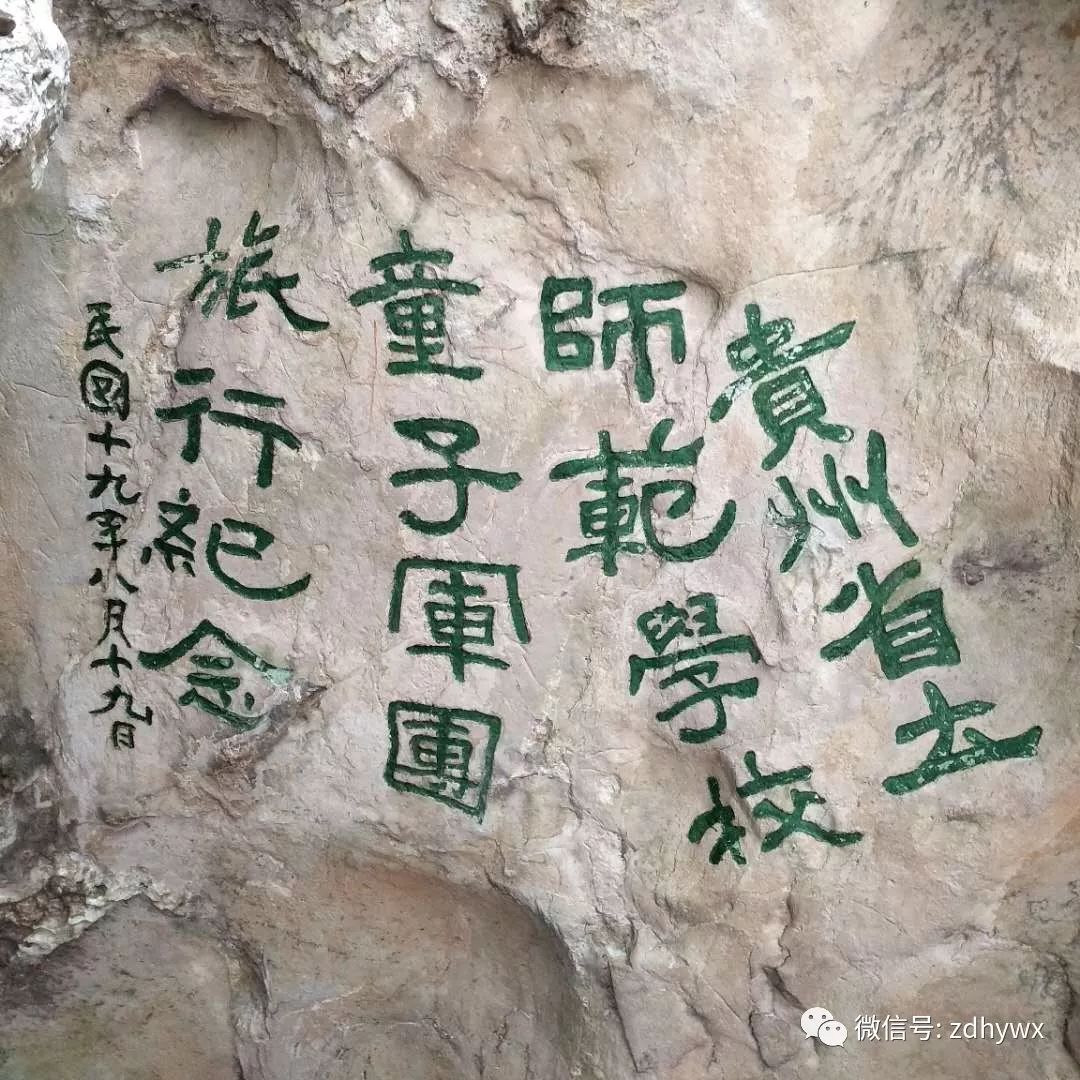 貴州省立
師範學校
童子軍團
旅行紀念
民國十九年八月十九日
微信号: zdhywx